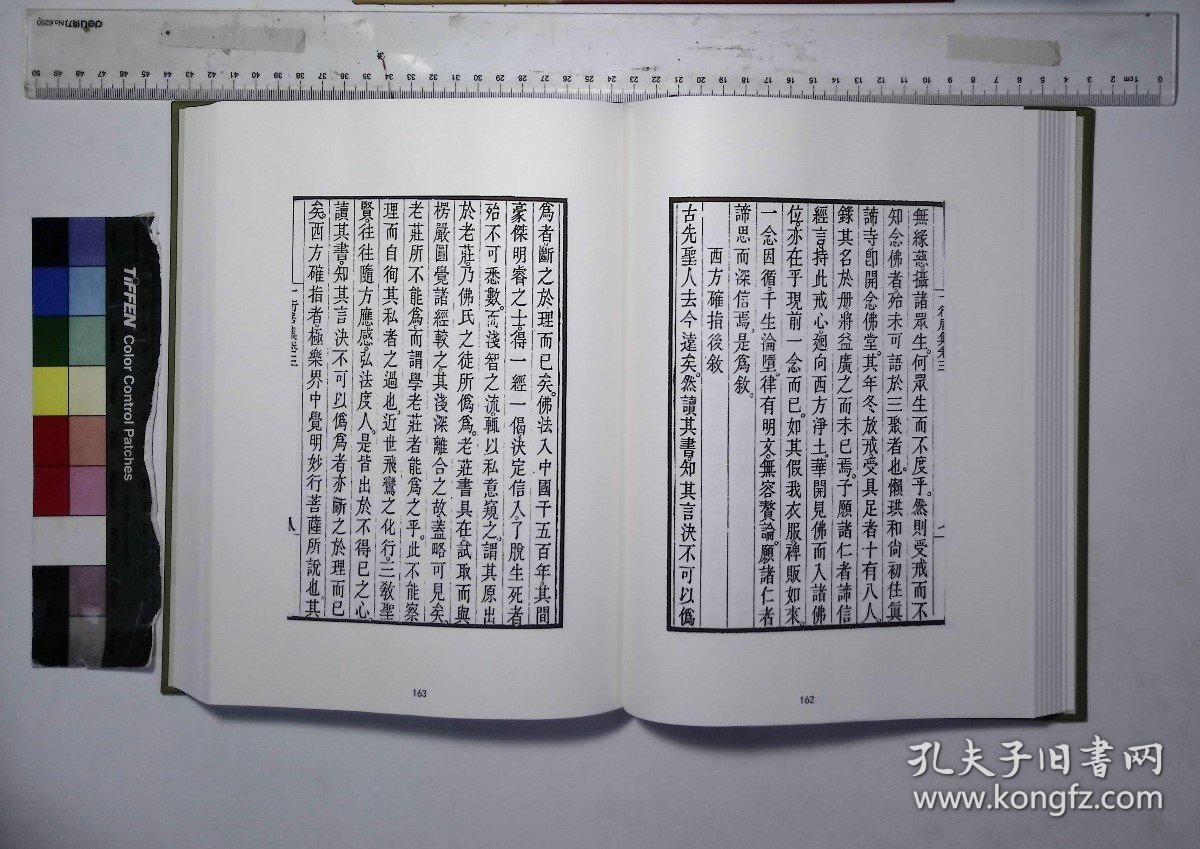 無緣慈攝諸眾生。何眾生而不度乎。然則受戒而不
知念佛者。殆未可語於三聚者也。懶珙和尚初住眞
諦寺。卽開念佛堂。其年冬。放戒受具足者十有八人。
錄其名於册。將益廣之而未已焉。子願諸仁者諦信
經言。持此戒心。迴向西方淨土。華開見佛。而入諸佛
位。亦在乎現前一念而已。如其假我衣服。裨販如來。
一念因循。千生淪墮。律有明文。無容贅論。願諸仁者
諦思而深信焉。是為敘。
西方確指後敘
古先聖人去今遠矣。然讀其書。知其言決不可以偽
162
為者。斷之於理而已矣。佛法入中國千五百年。其間
豪傑明睿之士。得一經一偈。決定信入。了脫生死者
殆不可悉數。而淺智之流。輒以私意窺之。謂其原出
於老莊。乃佛氏之徒所偽為。老莊書具在。試取而與
楞嚴圓覺諸經較之。其淺深離合之故。蓋略可見矣。
老莊所不能為。而謂學老莊者能為之乎。此不能察
理而自徇其私者之過也。近世飛鸞之化行。三教聖
賢。往往隨方應感。弘法度人。是皆出於不得已之心。
讀其書。知其言決不可以偽為者。亦斷之於理而已
矣。西方確指者。極樂界中覺明妙行菩薩所說也。其
163
TIFFEN Color Control Patches
deli得力 No.6250
0 1cm 2 3 4 5 6 7 8 9 10 11 12 13 14 15 16 17 18 19 20 21 22 23 24 25 26 27 28 29 30 31 32 33 34 35 36 37 38 39 40 41 42 43 44 45 46 47 48 49 50
孔夫子旧书网
www.kongfz.com